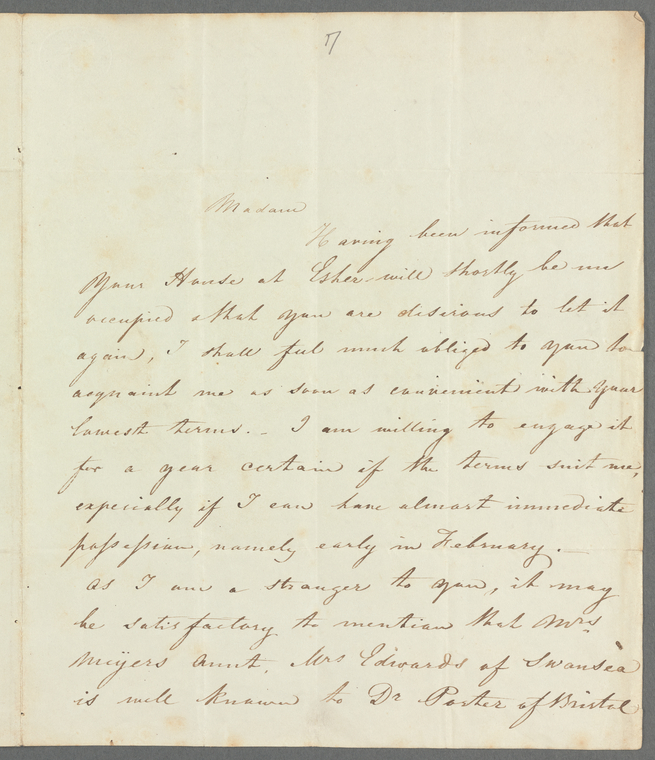 17
Madam
Having been informed that
your House at Esher will shortly be un
occupied & that you are desirous to let it
again, I shall feel much obliged to you to
acquaint me as soon as convenient with your
lowest terms. - I am willing to engage it
for a year certain if the terms suit me,
especially if I can have almost immediate
possession, namely early in February. —
As I am a stranger to you, it may
be satisfactory to mention that Mrs
Meyers Aunt, Mrs Edwards of Swansea
is well known to Dr Porter of Bristol